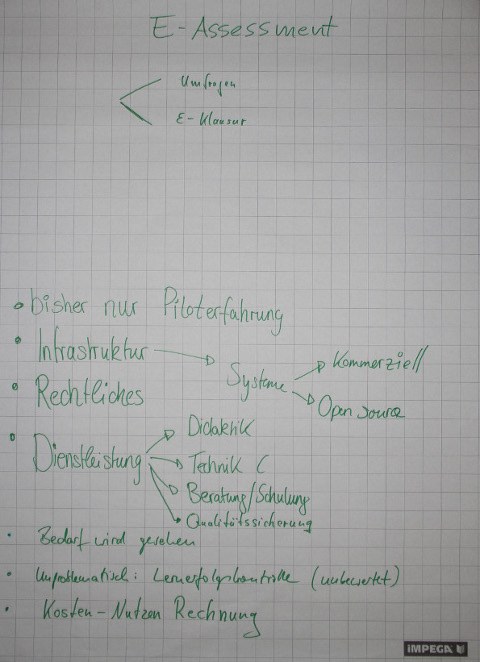 E-Assessment
Umfragen
E-Klausur
bisher nur Piloterfahrung
Infrastruktur
Systeme
Kommerziell
Open source
Rechtliches
Dienstleistung
Didaktik
Technik (
Beratung/Schulung
Qualitätssicherung
Bedarf wird gesehen
Unproblematisch: Lernerfolgskontrolle (unbewertet)
Kosten-Nutzen Rechnung
IMPEGA